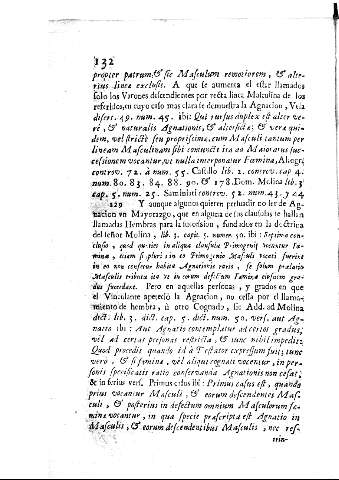 132
propter patrum, & sic Masculum remotiorem, & alte-
rius lineæ exclusis. A que se aumenta el estar llamados
solo los Varones descendientes por recta linea Masculina de los
referidos, en cuyo caso mas clara se demuestra la Agnacion, Vela
disert. 49. num. 45. ibi: Qui rursus duplex est alter ve-
ri, & naturalis Agnationis, & alter ficta; & vera qui-
dem, vel strictè seu propriissima, cum Masculi tantum per
lineam Masculinam sibi conjuncti ita ad Maioratus suc-
cessionem vocantur, ut nulla interponatur Fœmina, Altogr.
controv. 72. à num. 55. Castillo lib. 2. controv. cap 4.
num. 80. 83. 84. 88. 90. & 178. Dom. Molina lib. 3
cap. 5. num. 25. Saminiat controv. 52. num. 43. y 44
129 Y aunque algunos quieren persuadir no ser de Ag-
nacion un Mayorazgo, que en alguna de sus clausulas se hallan
llamadas Hembras para la sucession, fundados en la doctrina
del señor Molina, lib. 3. capit. 5. numer. 50. ibi: Septima con-
clusio, quod quoties in aliqua clausula Primogenij vocantur Fœ-
minæ, etiam si plures in eo Primogenio Masculi vocati fuerint
in eo non censetur habita Agnationis ratio, sed solum prælatio
Masculis tributa
suscedere. Pero en aquellas personas, y grados en que
el Vinculante apeteciò la Agnacion, no cessa por el llama-
miento de hembra, à otro Cognado, sic Add. ad Molina
dict: lib. 3. dict. cap. 5. dict: num. 50. vers. aut Ag-
natio ibi: Aut Agnatio contemplatur ad certos gradus,
vel ad certas personas restricta, & tunc nihil impedit:
Quod procedit quando id à Testatore expressum fuit; tunc
vero, & si fœmina, vel aliqui cognati vocentur, in per-
sonis specificatis ratio conservandæ Agnationis non cessat;
& in ferius vers. Primus casus ibi: Primus casus est, quando
prius vocantur Masculi, & eorum descendentes Mas-
culi, & posterius in defectum omnium Masculorum fœ-
minæ vocantur, in qua specie præscripta est Agnatio in
Masculis, & eorum descendentibus Masculis, nec res-
trin-